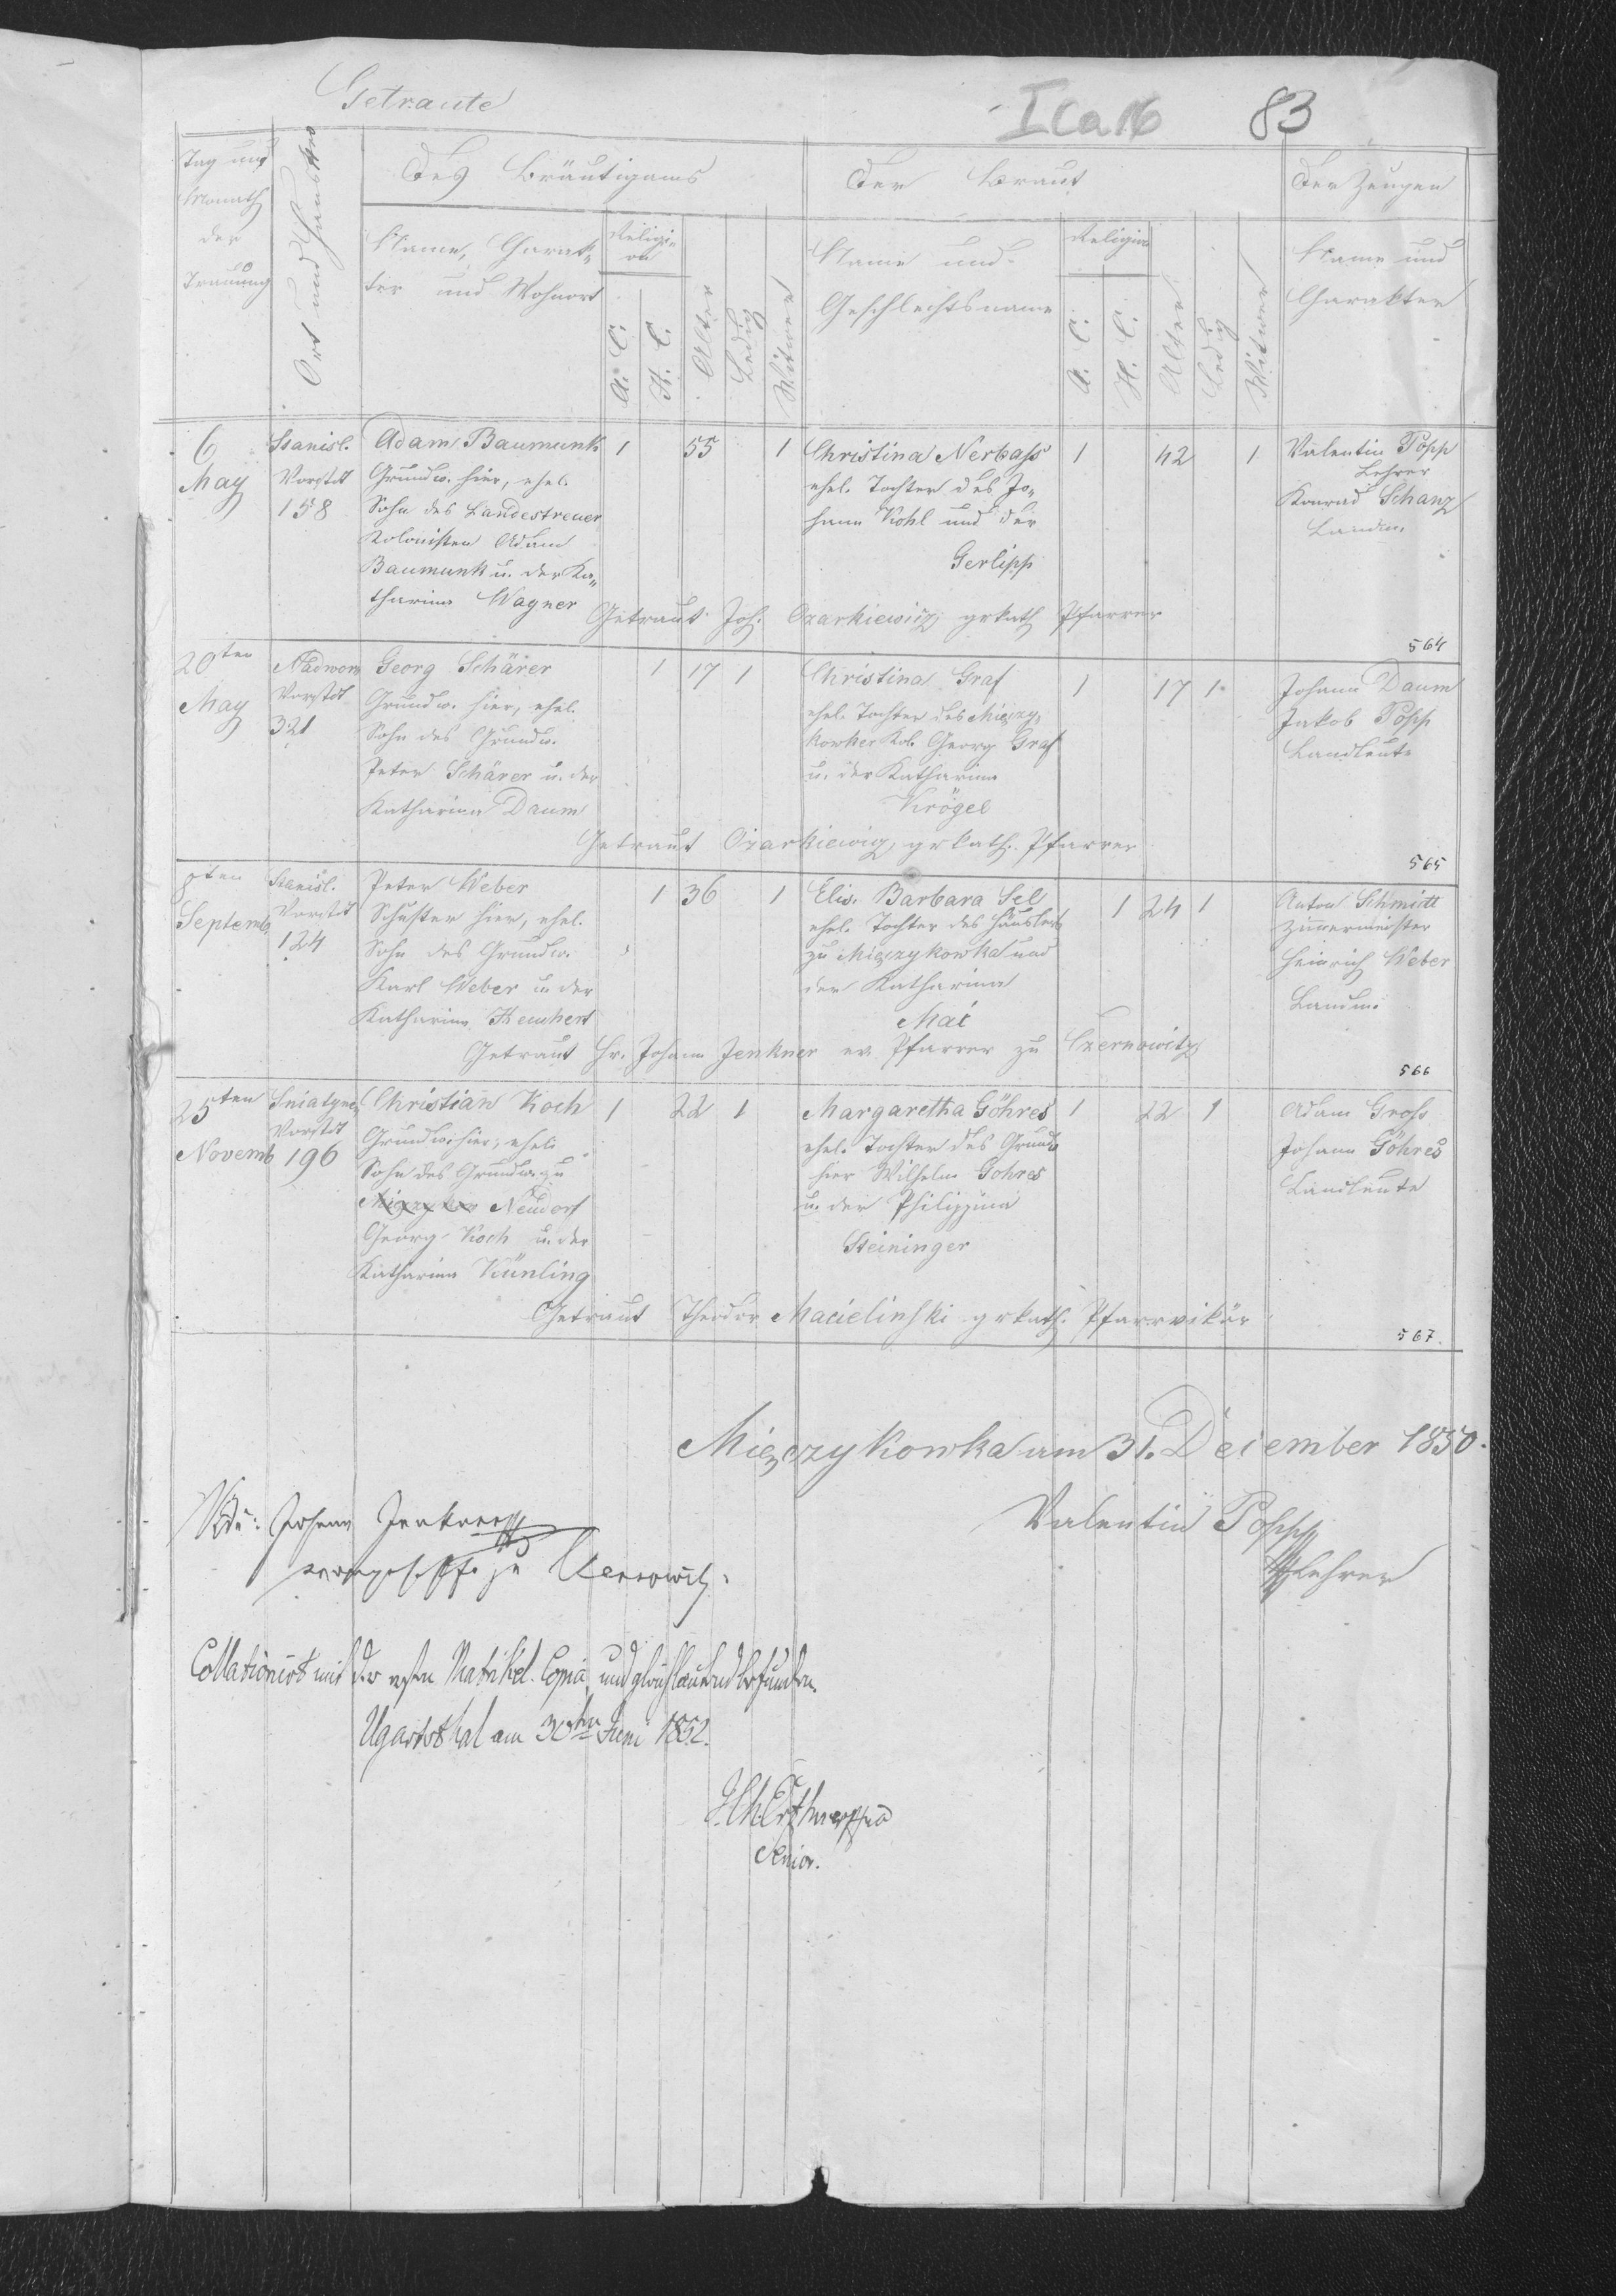 Getraute
ICa16 83
Tag und
Monath
der
Trauung
Ort und Haus Nro
Des Bräutigams
Der Braut
Der Zeugen
Name, Charak„
ter und Wohnort
Religi„
on
A. C.
H. C.
Alter
Ledig
Witwer
Name und
Geschlechtsname
Religion
A. C.
H. C.
Alter
Ledig
Witwer
Name und
Charakter
6
May
Stanisl.
Vorstdt
158
Adam Baumunk
Grundw. hier, ehel.
Sohn des Landestreuer
Kolonisten Adam
Baumunk u. der Ka„
tharina Wagner
1 55 1
Christina Nerbass
ehel. Tochter des Jo„
hann Kohl und der
Gerlipp
1 42 1
Valentin Popp
Lehrer
Konrad Schanz
Landm.
Getraut Joh. Ozarkiewicz grkath Pfarrer
564
20ten
May
Nadworn
Vorstdt
321
Georg Schärer
Grundw. hier, ehel.
Sohn des Grundw.
Peter Schärer u. der
Katharina Daum
1 17 1
Christina Graf
ehel. Tochter des Mięczy„
kowker Kol. Georg Graf
u. der Katharina
Krögel
1 17 1
Johann Daum
Jakob Popp
Landleute
Getraut Ozarkiewicz, grkath. Pfarrer
565
8ten
Septemb
Stanisl.
Vorstdt
124
Peter Weber
Schuster hier, ehel.
Sohn des Grundw.
Karl Weber u. der
Katharina
1 36 1
Elis. Barbara Sel
ehel. Tochter des Häuslers
zu Mięczykowka und
der Katharina
Mai
1 24 1
Anton Schmidt
Zimmermeister
Heinrich Weber
Landm.
Getraut Hr. Johann Jenkner ev Pfarrer zu Czernowitz
566
25ten
Novemb
Sniatyner
Vorstdt
196
Christian Koch
Grundw. hier, ehel.
Sohn des Grundw. zu
Neudorf
Georg Koch u. der
Katharina Künling
1 22 1
Margaretha Göhres
ehel. Tochter des Grundw
hier Wilhelm Göhres
u. der Philippina
Steininger
1 22 1
Adam Gross
Johann Göhres
Landleute
Getraut Theodor Macielinski grkath. Pfarrvikär
567.
Mięczykowka am 31. December 1850.
Vidi: Johann Jenkner
zu Czernowitz.
Valentin Popp
Lehrer
Collationirt mit der ersten Matrikel. Copia, und gleichlautend befunden.
Ugartsthal am 30ten Juni 1852.
Senior.